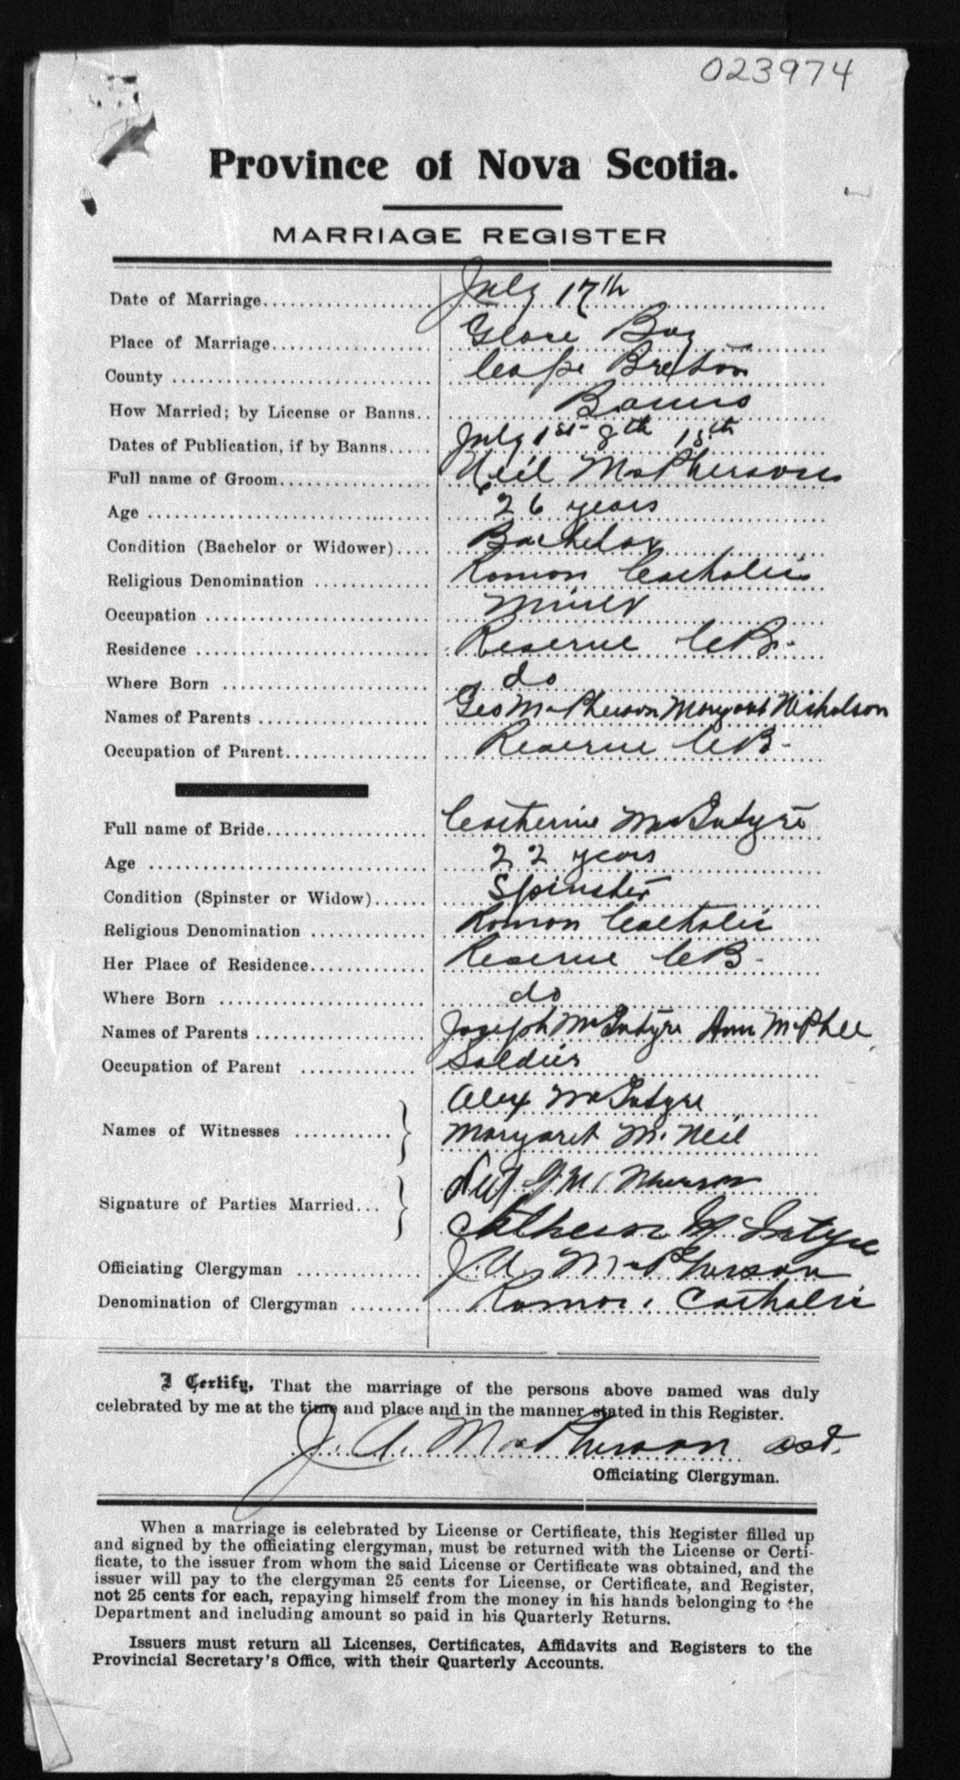 023974
Province of Nova Scotia.
MARRIAGE REGISTER
Date of Marriage July 17th
Place of Marriage Glace Bay
County Cape Breton
How Married; by License or Banns Banns
Dates of Publication, if by Banns July 1st 8th 15th
Full name of Groom Neil McPherson
Age 26 years
Condition (Bachelor or Widower) Bachelor
Religious Denomination Roman Catholic
Occupation Miner
Residence Reserve CB.
Where Born do
Names of Parents Geo McPherson Margaret Nicholson
Occupation of Parent Reserve CB.
Full name of Bride Catherine McIntyre
Age 22 years
Condition (Spinster or Widow) Spinster
Religious Denomination Roman Catholic
Her Place of Residence Reserve CB.
Where Born do
Names of Parents Joseph McIntyre Ann McPhee
Occupation of Parent Soldier
Alex McIntyre
Names of Witnesses
Margaret McNeil
Signature of Parties Married
McIntyre
Officiating Clergyman J. A. McPherson
Denomination of Clergyman Roman Catholic
I Certify, That the marriage of the persons above named was duly
celebrated by me at the time and place and in the manner stated in this Register.
J. A. McPherson
Officiating Clergyman.
When a marriage is celebrated by License or Certificate, this Register filled up
and signed by the officiating clergyman, must be returned with the License or Certi-
ficate, to the issuer from whom the said License or Certificate was obtained, and the
issuer will pay to the clergyman 25 cents for License, or Certificate, and Register,
not 25 cents for each, repaying himself from the money in his hands belonging to the
Department and including amount so paid in his Quarterly Returns.
Issuers must return all Licenses, Certificates, Affidavits and Registers to the
Provincial Secretary's Office, with their Quarterly Accounts.